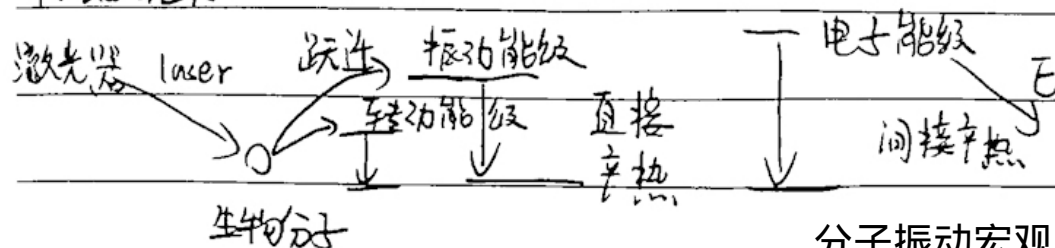 激光器 laser 跃迁 振动能级 电子能级
转动能级 直接产热 间接产热
生物分子
分子振动宏观